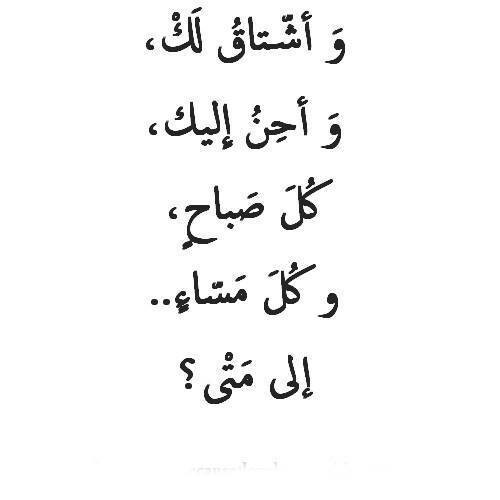 وَ أشّـتاقُ لَكْ،
وَ أحِنُ إليك،
كُلَ صَباحٍ،
و كُلَ مَسّاءٍ..
إلى مَتْى؟